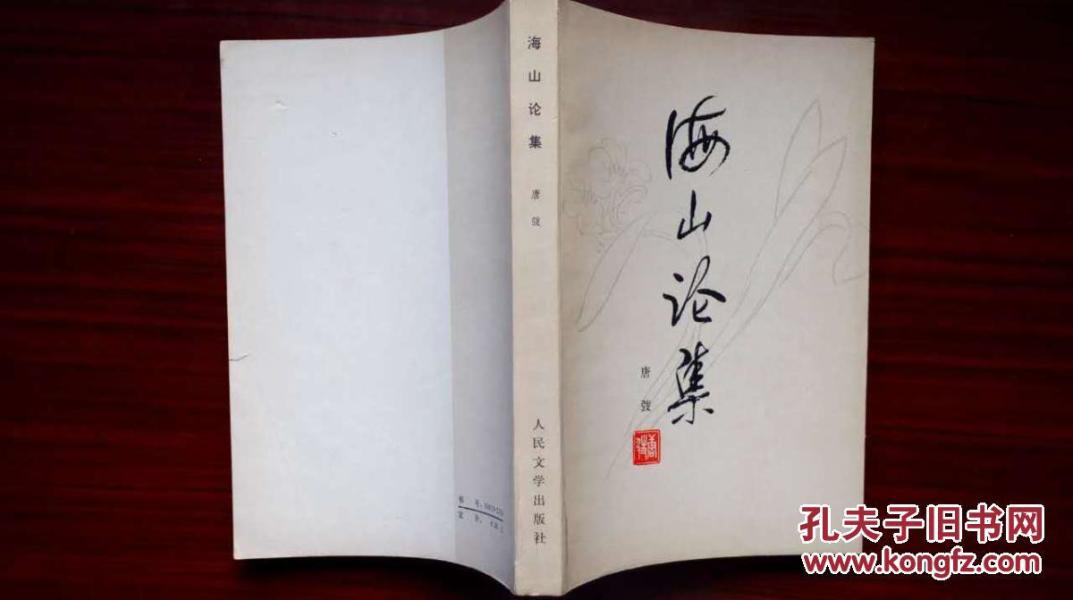 海山论集
唐弢
人民文学出版社
海山论集
唐弢
唐弢
书号
定价
孔夫子旧书网
www.kongfz.com